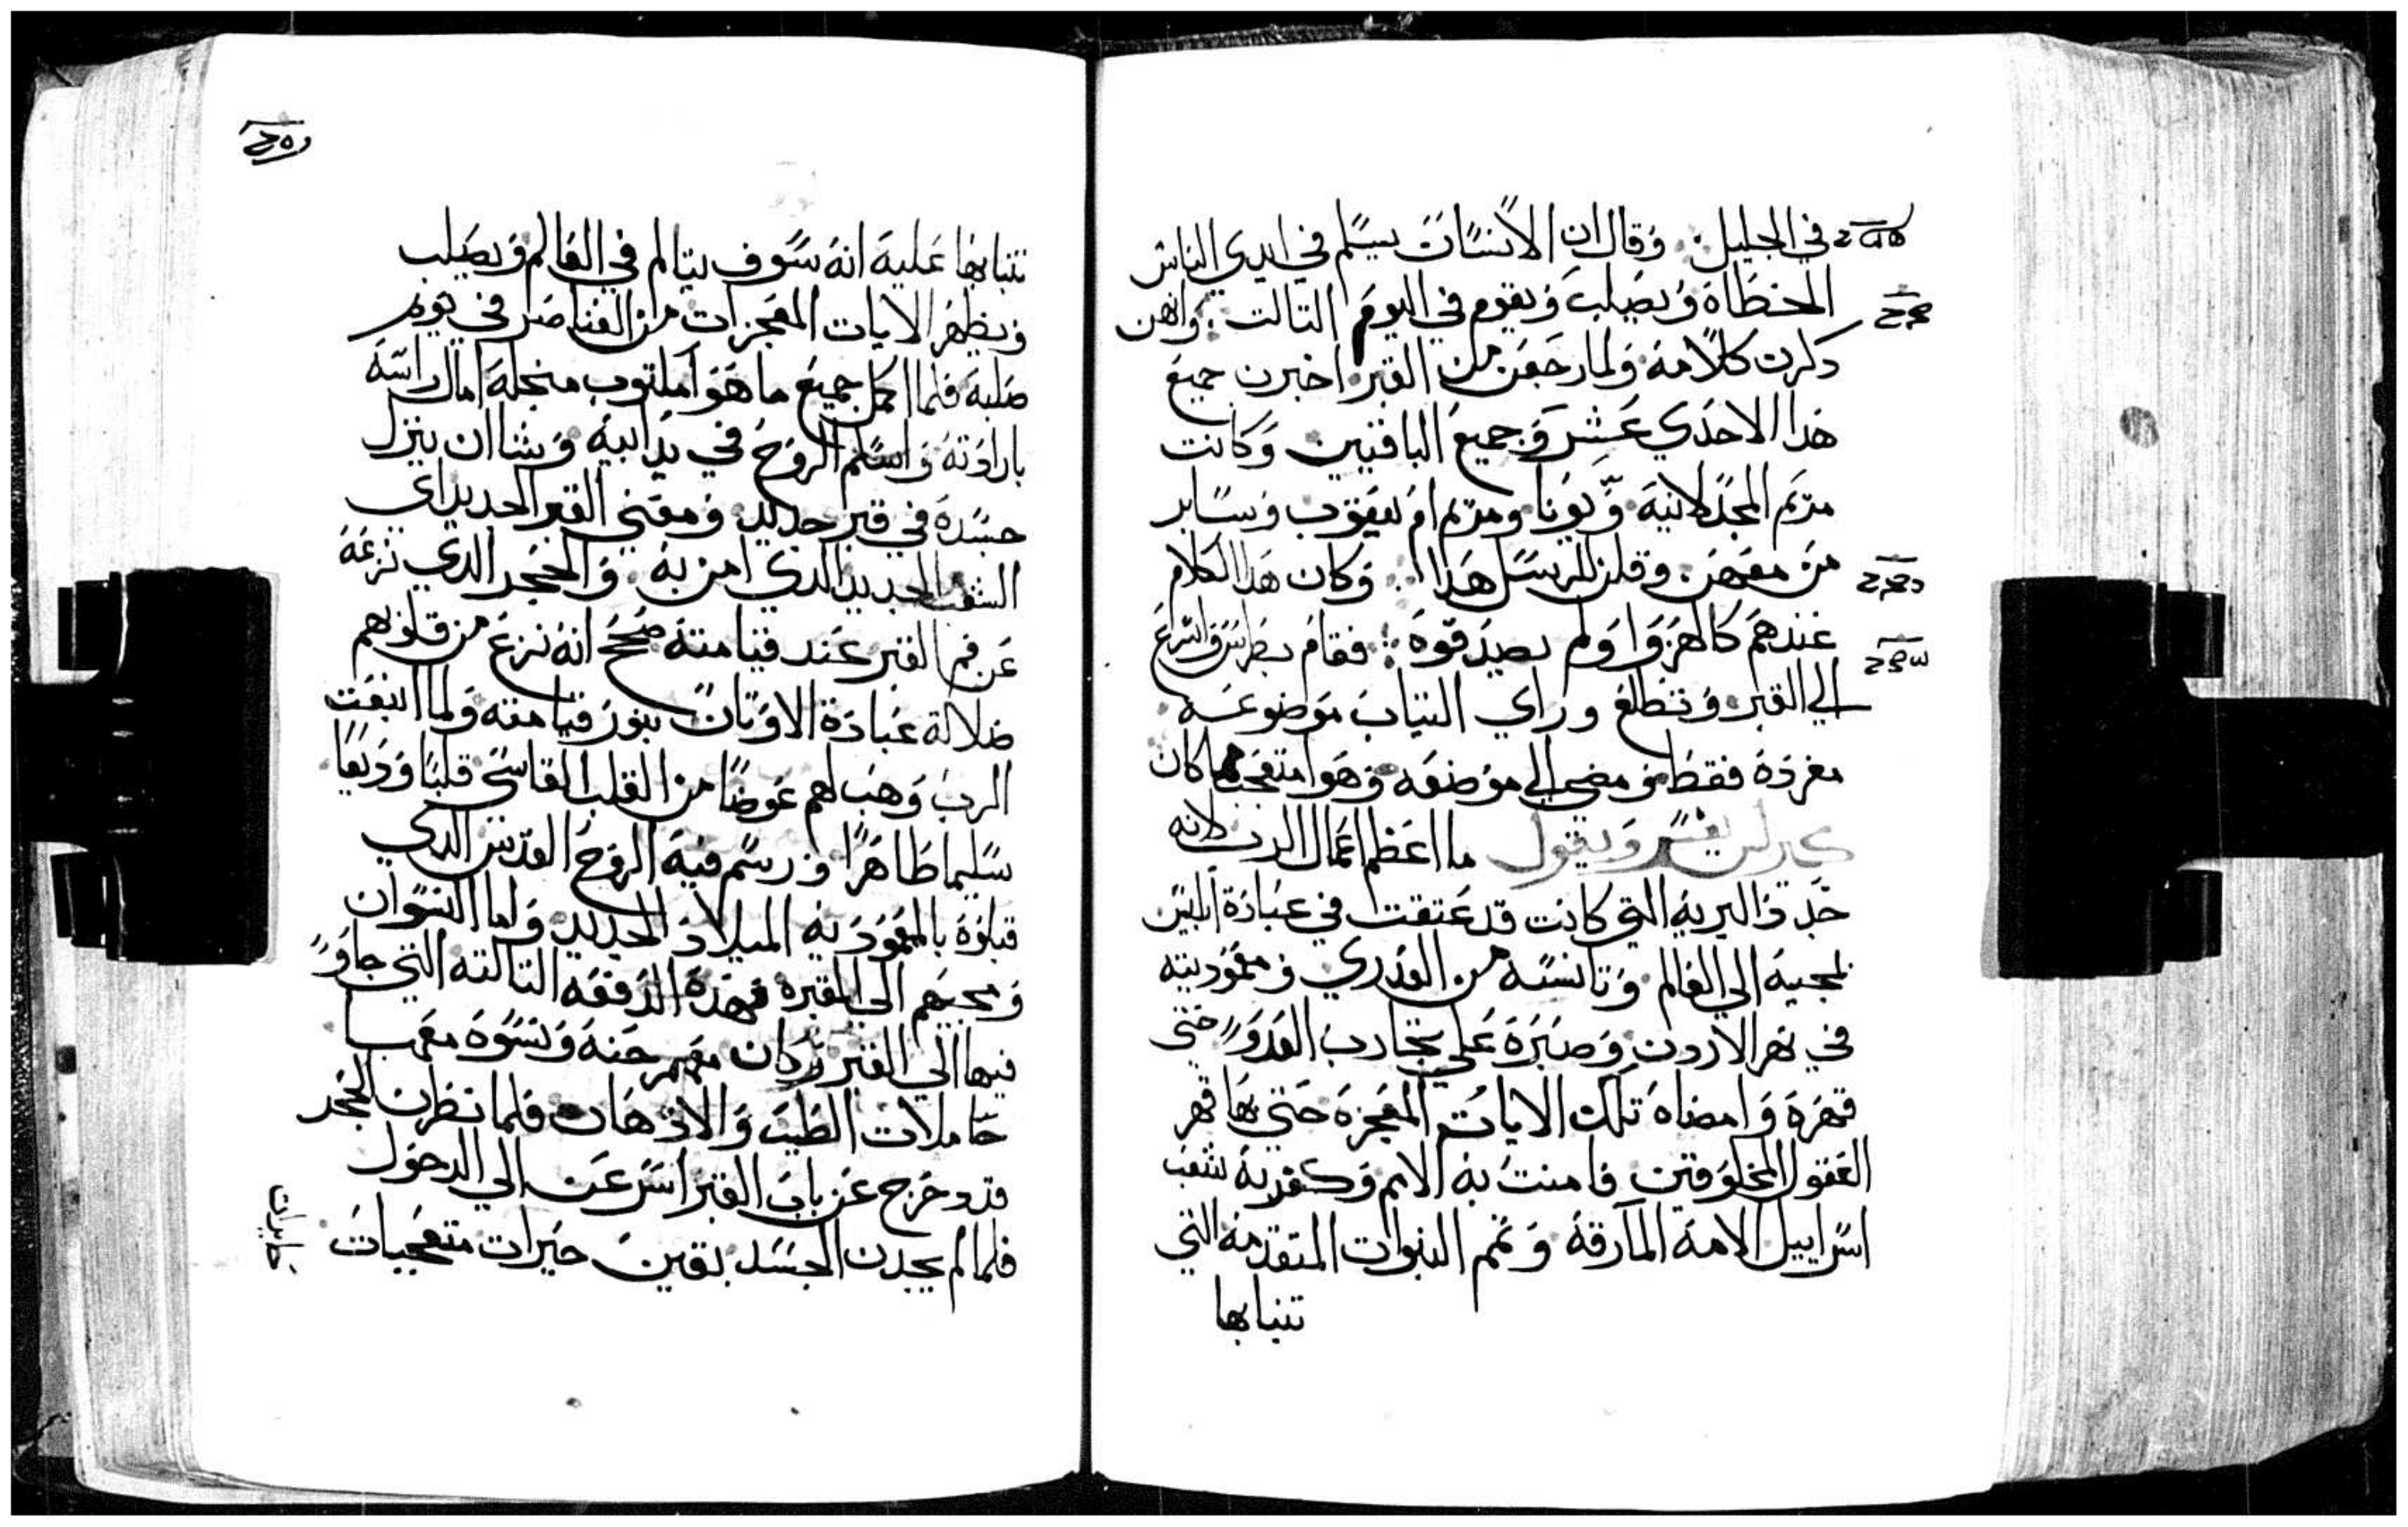 في الجليل. وقال ان الانسان يسلم في ايدي الناس
الخطاه ويصلب ويقوم في اليوم التالت. وانهن
دكرن كلامه ولما رجعن من القبر اخبرن جميع
هدا الاحدي عشر وجميع الباقيين وكانت
مريم المجدلانيه ويونا ومريم ام يعقوب وساير
من معهن. وقلن للرسل هدا. وكان هدا الكلام
عندهم كالهزوا ولم يصدقوه. فقام بطرس واسرع
الي القبر وتطلع وراي التياب موضوعه
مفرده فقط ومضي الي موضعه وهو متعجب مما كان
كيرلس يفسر ويقول ما اعظم اعمال الرب لانه
جدد البريه التي كانت قد عتقت في عبادة ابليس
بمجيه الي العالم وتانسه من العدري ومعموديته
في نهر الاردن وصبره علي تجارب العدو حتي
قهره وامضاه تلك الايات المعجزه حتي بها قهر
العقول المخلوقين فامنت به الامم وكفر به شعب
اسراييل الامه المارقه وتمم النبوات المتقدمه التي
تنبا بها
تنبا بها عليه انه سوف يتالم في العالم ويصلب
ويظهر الايات المعجزات من العناصر في يوم
صلبه فلما اكمل جميع ما هو مكتوب منجله امال راسه
بارادته واسلم الروح في يد ابيه وشا ان ينزل
جسده في قبر جديد ومعني القبر الجديد اي
الشعب الجديد الدي امن به. والحجر الدي نزعه
عن فم القبر عند قيامته صح انه نزع من قلوبهم
ضلالة عبادة الاوتان بنور قيامته ولما انبعت
الرب وهب لهم عوضا من القلب القاسي قلبا وديعا
سليما طاهرا ورسم فيه الروح القدس الدي
قبلوه بالمعموديه الميلاد الجديد واما النسوان
ومجيهم الي القبر فهده الدفعه التالته التي جاو
فيها الي القبر وكان معهم حنه ونسوه معها
حاملات الطيب والادهان فلما نظرن الحجر
قد دحرج عن باب القبر اسرعن الي الدخول
فلما لم يجدن الجسد بقين حيرات متعجبات